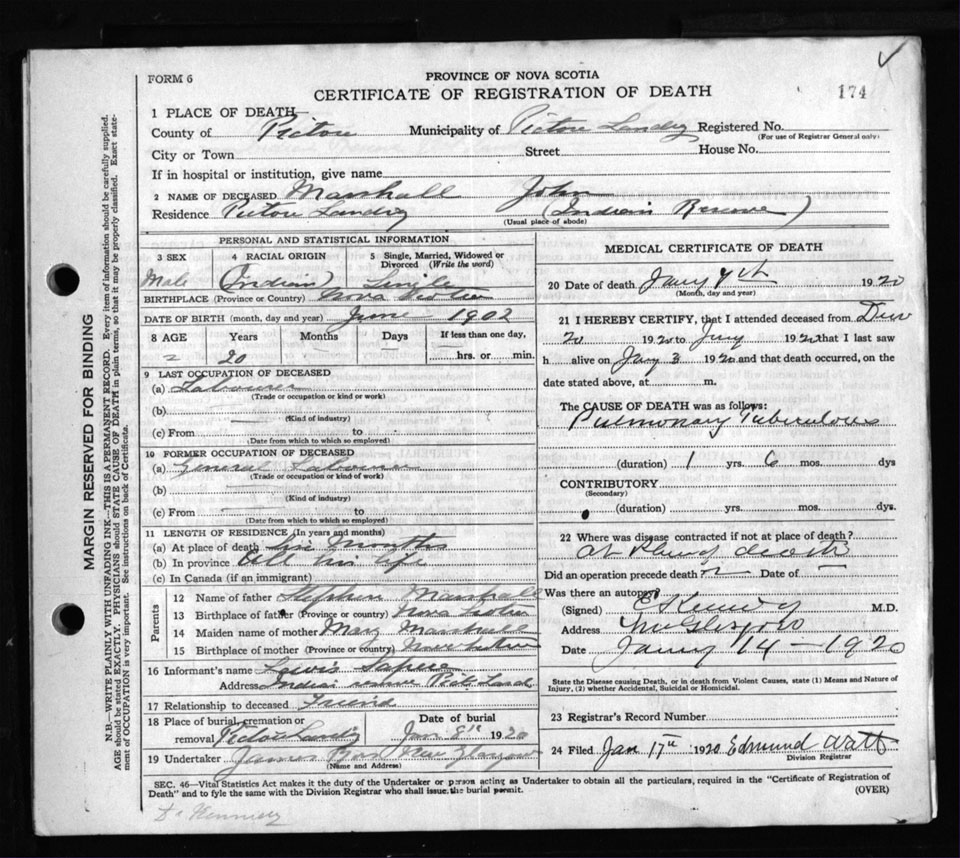 FORM 6
PROVINCE OF NOVA SCOTIA
CERTIFICATE OF REGISTRATION OF DEATH
174
1 PLACE OF DEATH
County of Pictou Municipality of Pictou Landing Registered No.
(For use of Registrar General only)
City or Town Street House No.
If in hospital or institution, give name
2 NAME OF DECEASED Marshall John
Residence Pictou Landing (Indian Reserve)
(Usual place of abode)
PERSONAL AND STATISTICAL INFORMATION
3 SEX 4 RACIAL ORIGIN 5 Single, Married, Widowed or
Divorced (Write the word)
Male (Indian) Single
BIRTHPLACE (Province or Country) Nova Scotia
DATE OF BIRTH (month, day and year) June 1902
8 AGE Years Months Days If less than one day,
20 hrs. or min.
9 LAST OCCUPATION OF DECEASED
(a) Labourer
(Trade or occupation or kind or work)
(b)
(Kind of industry)
(c) From to
(Date from which to which so employed)
10 FORMER OCCUPATION OF DECEASED
(a) General Labourer
(Trade or occupation or kind of work)
(b)
(Kind of industry)
(c) From to
(Date from which to which so employed)
11 LENGTH OF RESIDENCE (In years and months)
(a) At place of death Six Months
(b) In province All his life
(c) In Canada (if an immigrant)
Parents
12 Name of father Stephen Marshall
13 Birthplace of father (Province or country) Nova Scotia
14 Maiden name of mother Mary Marshall
15 Birthplace of mother (Province or country) Nova Scotia
16 Informant's name Lewis
Address Indian reserve Pict. Land
17 Relationship to deceased Friend
18 Place of burial, cremation or Date of burial
removal Pictou Landing Jan 8th 1920
19 Undertaker James New Glasgow
(Name and Address)
MEDICAL CERTIFICATE OF DEATH
20 Date of death Jany 7th 1920
(Month, day and year)
21 I HEREBY CERTIFY, that I attended deceased from
20 1920 to Jany 1920 that I last saw
h alive on Jany 3 1920 and that death occurred, on the
date stated above, at m.
The CAUSE OF DEATH was as follows:
Pulmonary Tuberculosis
(duration) 1 yrs. 6 mos. dys
CONTRIBUTORY
(Secondary)
(duration) yrs. mos. dys.
22 Where was disease contracted if not at place of death?
at place of death
Did an operation precede death? Date of
Was there an autopsy?
(Signed) Kennedy M.D.
Address New Glasgow
Date Jany 14 - 1920
State the Disease causing Death, or in death from Violent Causes, state (1) Means and Nature of
Injury, (2) whether Accidental, Suicidal or Homicidal.
23 Registrar's Record Number
24 Filed Jan 17th 1920 Edmund Watt
Division Registrar
SEC. 46—Vital Statistics Act makes it the duty of the Undertaker or person acting as Undertaker to obtain all the particulars, required in the "Certificate of Registration of
Death" and to fyle the same with the Division Registrar who shall issue the burial permit. (OVER)
Dr Kennedy
MARGIN RESERVED FOR BINDING
N.B.—WRITE PLAINLY WITH UNFADING INK—THIS IS A PERMANENT RECORD. Every item of information should be carefully supplied.
AGE should be stated EXACTLY. PHYSICIANS should STATE CAUSE OF DEATH in plain terms, so that it may be properly classified. Exact state-
ment of OCCUPATION is very important. See instructions on back of Certificate.